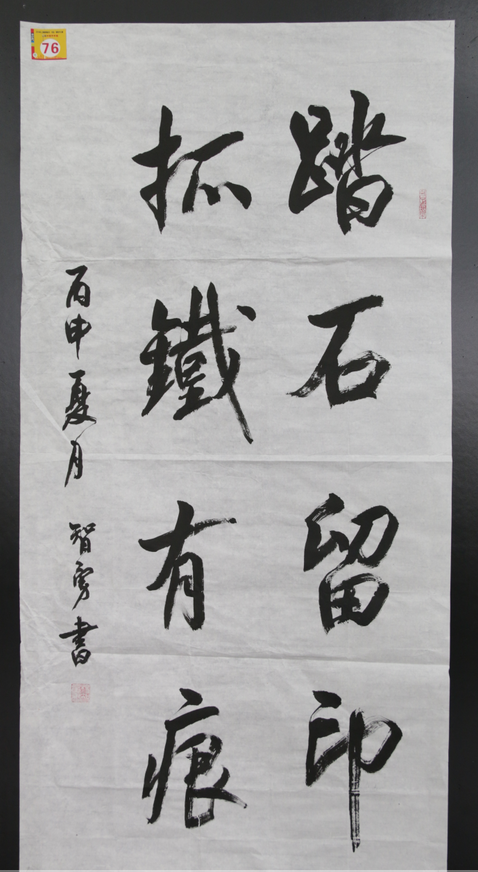 踏石留印
抓鐵有痕
丙申夏月 智勇書
76